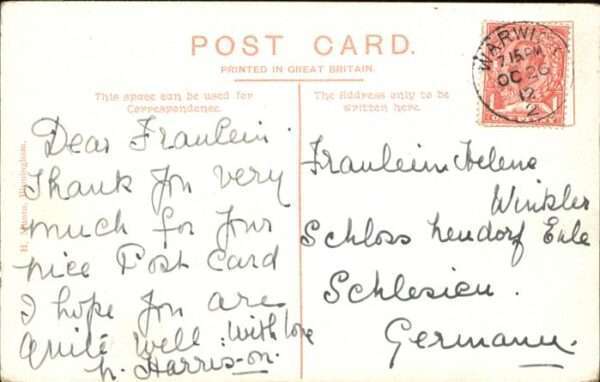 POST CARD.
PRINTED IN GREAT BRITAIN.
This space can be used for
Correspondence.
The Address only to be
written here.
WARWICK
7.15 PM
OC 26
12
2
Dear Fraulein.
Thank you very
much for your
nice Post Card
I hope you are
quite well. With love
Harris-on.
Fraulein Helene
Winkler
Schloss neudorf Eule
Schlesien.
Germany.
Birmingham.